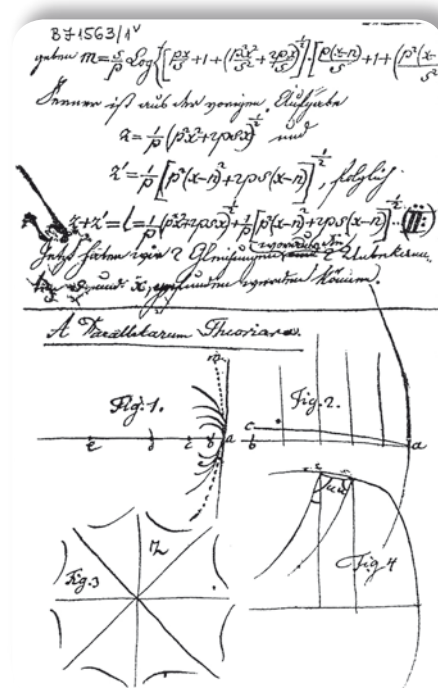 BJ 1563/1ᵛ
geben m = s/p Log {[px/s + 1 + (p²x²/s² + 2px/s)^½] · [p(x-n)/s + 1 + (p²(x-n)/s²
Ferner ist aus der vorigen Aufgabe
z = 1/p (p²x² + 2psx)^½ und
z' = 1/p [p²(x-n)² + 2ps(x-n)]^½, folglich
z + z' = l = 1/p (p²x² + 2psx)^½ + 1/p [p²(x-n)² + 2ps(x-n)]^½ . (II:)
Jetzt hätten wir 2 Gleichungen woraus die 2 Unbekann-
ten und x, gefunden werden können.
A Parallelarum Theoriara.
m
Fig. 1. Fig. 2.
e d c b a c b a
Fig. 3 Fig. 4